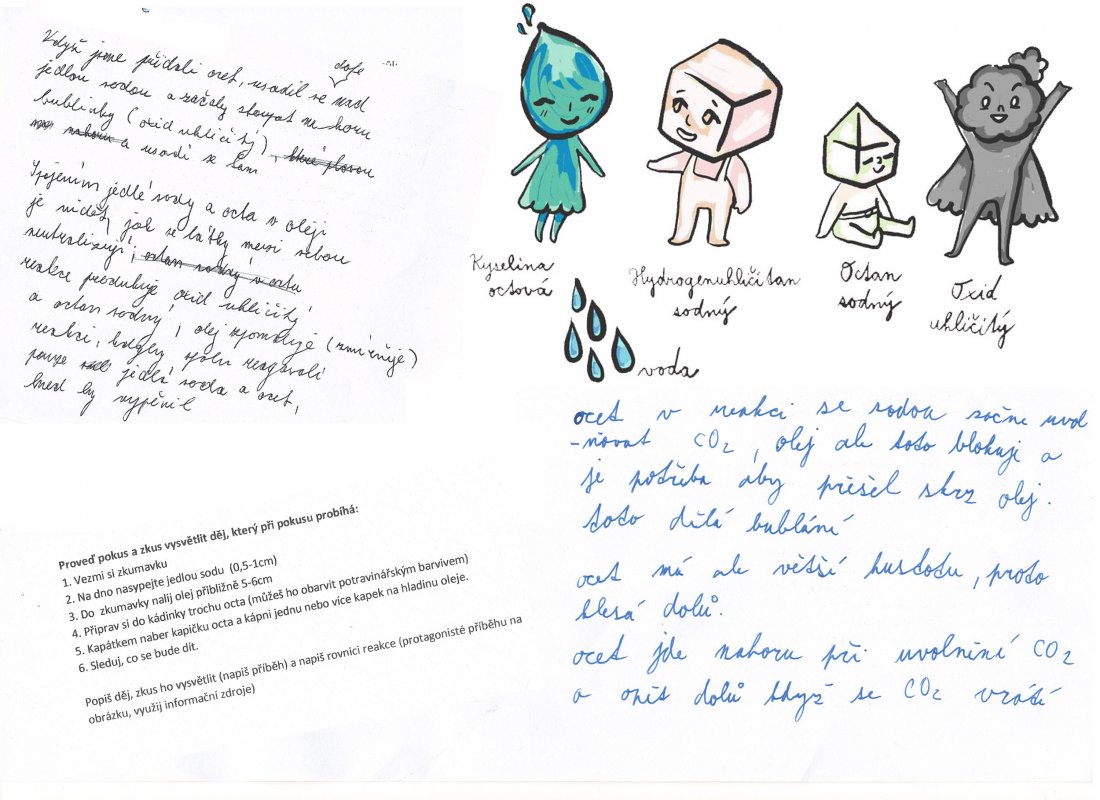 Když jsme přidali ocet, usadil se nad
dole
jedlou sodou a začaly stoupat na horu
bublinky (oxid uhličitý)
nahoru a usadí se tam
Spojením jedlé sody a octa v oleji
je vidět, jak se látky mezi sebou
neutralizují, octan sodný v octu
reakce produkuje oxid uhličitý
a octan sodný, olej zpomaluje (zmírňuje)
reakci, kdyby spolu reagovali
pouze jedlá soda a ocet,
hned by vypěnil
Kyselina
octová
Hydrogenuhličitan
sodný
Octan
sodný
Oxid
uhličitý
voda
ocet v reakci se sodou začne uvol
-ňovat CO2, olej ale toto blokuje a
je potřeba aby přešel skrz olej.
toto dělá bublání
ocet má ale větší hustotu, proto
klesá dolů.
ocet jde nahoru při uvolnění CO2
a opět dolů když se CO2 vrátí
Proveď pokus a zkus vysvětlit děj, který při pokusu probíhá:
1. Vezmi si zkumavku
2. Na dno nasypejte jedlou sodu (0,5-1cm)
3. Do zkumavky nalij olej přibližně 5-6cm
4. Připrav si do kádinky trochu octa (můžeš ho obarvit potravinářským barvivem)
5. Kapátkem naber kapičku octa a kápni jednu nebo více kapek na hladinu oleje.
6. Sleduj, co se bude dít.
Popiš děj, zkus ho vysvětlit (napiš příběh) a napiš rovnici reakce (protagonisté příběhu na
obrázku, využij informační zdroje)